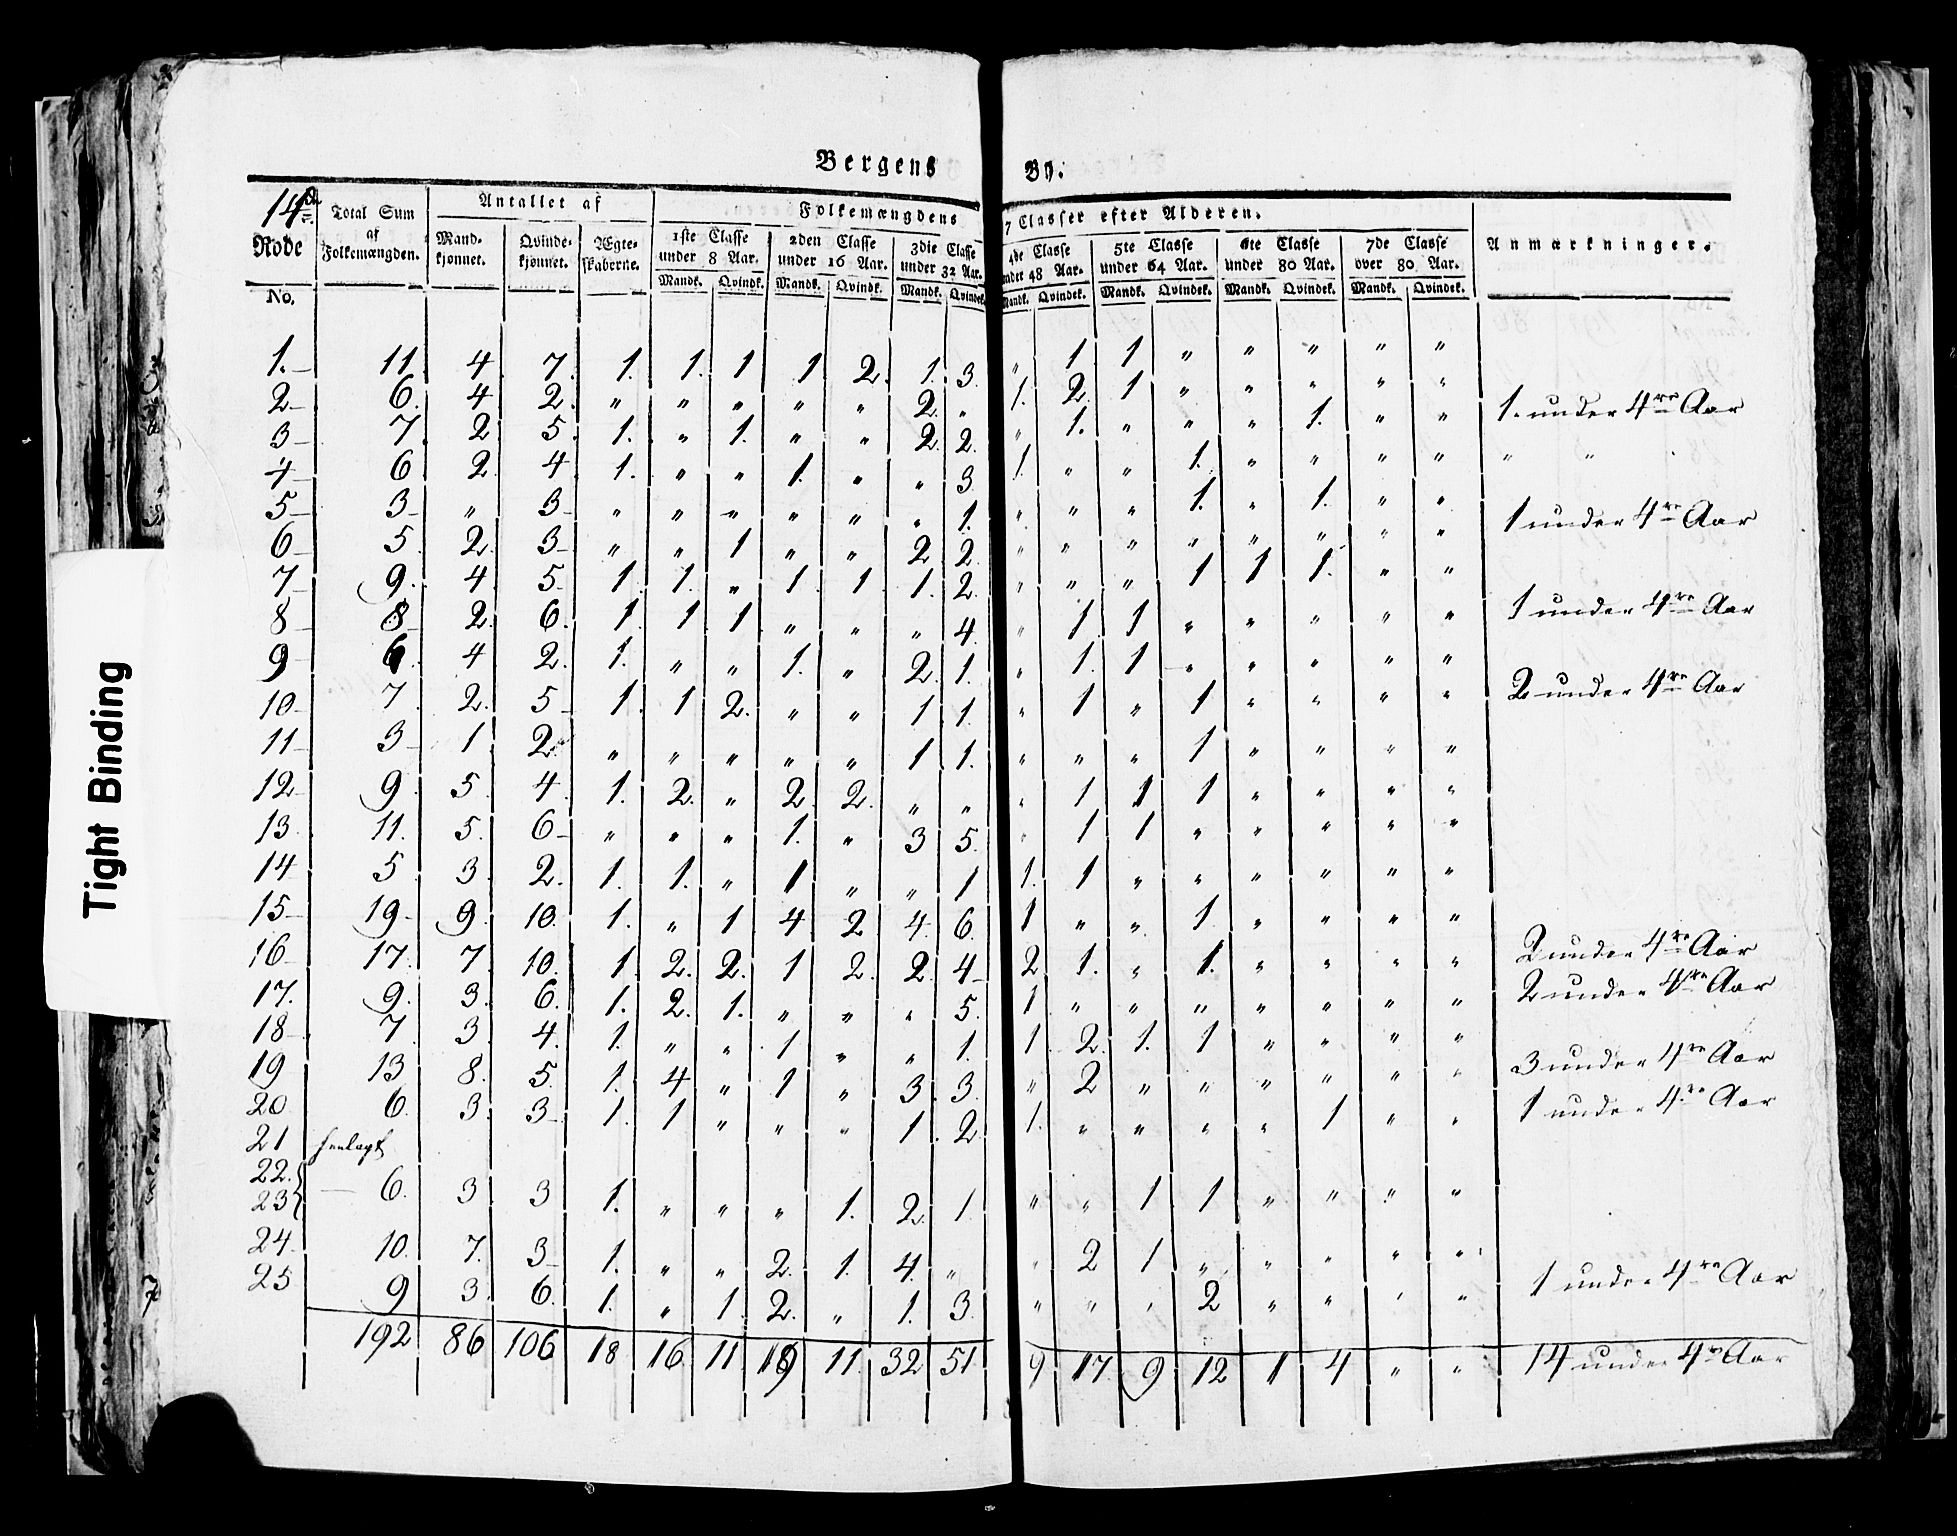 Bergens By.
14de Rode No. | Total Sum af Folkemængden. | Antallet af Mandkjønnet. | Qvindekjønnet. | Ægteskaberne. | Folkemængdens 7 Classer efter Alderen. 1ste Classe under 8 Aar. Mandk. | Qvindk. | 2den Classe under 16 Aar. Mandk. | Qvindk. | 3die Classe under 32 Aar. Mandk. | Qvindek. | 4de Classe under 48 Aar. Mandk. | Qvindek. | 5te Classe under 64 Aar. Mandk. | Qvindek. | 6te Classe under 80 Aar. Mandk. | Qvindek. | 7de Classe over 80 Aar. Mandk. | Qvindek. | Anmærkninger.
1. | 11 | 4 | 7. | 1. | 1. | 1 | 1 | 2. | 1. | 3. | " | 1 | 1 | " | " | " | " | "
2 | 6. | 4 | 2. | " | " | " | " | " | 2. | " | 1. | 2. | 1 | " | " | " | " | " | 1. under 4re Aar
3 | 7 | 2 | 5. | 1. | " | 1. | " | " | 2. | 2. | " | 1. | " | " | " | 1. | " | "
4 | 6 | 2. | 4 | 1. | " | " | 1. | " | " | 3. | 1. | " | " | 1. | " | " | " | " | " "
5 | 3 | " | 3 | " | " | " | " | " | " | 1. | " | " | " | 1. | " | 1. | " | " | 1 under 4re Aar
6 | 5. | 2. | 3 | " | " | 1 | " | " | 2 | 2. | " | " | " | " | " | " | " | "
7 | 9. | 4 | 5. | 1. | 1. | " | 1. | 1 | 1. | 2. | " | " | " | 1 | 1 | 1. | " | "
8 | 8 | 2. | 6. | 1. | 1 | 1 | " | " | " | 4. | " | 1 | 1 | " | " | " | " | " | 1 under 4re Aar
9 | 6. | 4 | 2. | 1. | " | " | 1. | " | 2. | 1. | " | 1. | 1 | " | " | " | " | "
10 | 7. | 2. | 5 | 1. | 1 | 2. | " | " | 1 | 1. | " | 1 | " | 1 | " | " | " | " | 2 under 4re Aar
11 | 3 | 1 | 2. | " | " | " | " | " | 1 | 1. | " | " | " | 1 | " | " | " | "
12 | 9. | 5. | 4. | 1. | 2. | " | 2 | 2. | " | " | " | 1 | 1 | 1 | " | " | " | "
13. | 11. | 5. | 6 | " | " | " | 1. | " | 3 | 5. | " | 1 | 1 | " | " | " | " | "
14 | 5 | 3. | 2. | 1. | 1. | " | 1 | " | " | 1 | 1. | 1 | " | " | " | " | " | "
15 | 19. | 9. | 10. | 1. | " | 1 | 4 | 2 | 4. | 6. | 1 | " | " | 1. | " | " | " | "
16 | 17. | 7. | 10. | 1. | 2. | 2. | 1 | 2. | 2. | 4 | 2 | 1. | " | 1. | " | " | " | " | 2 under 4re Aar
17. | 9. | 3. | 6. | 1. | 2. | 1. | " | " | " | 5. | 1 | " | " | " | " | " | " | " | 2 under 4re Aar
18 | 7 | 3 | 4. | 1. | " | " | 1 | " | " | 1. | 1 | 2. | 1. | 1 | " | " | " | "
19 | 13 | 8. | 5. | 1. | 4 | " | 1 | " | 3. | 3. | " | 2 | " | " | " | " | " | " | 3 under 4re Aar
20 | 6. | 3. | 3 | 1. | 1 | " | " | " | 1. | 2. | 1. | " | " | " | " | 1 | " | " | 1 under 4re Aar
21
22. } 23 } | 6. | 3 | 3 | 1. | " | " | " | 1. | 2. | 1 | " | " | 1 | 1 | " | " | " | "
24 | 10. | 7. | 3 | 1. | " | " | 2. | 1. | 4. | " | " | 2 | 1 | " | " | " | " | "
25 | 9 | 3. | 6. | 1. | " | 1. | 2. | " | 1. | 3. | " | " | " | 2 | " | " | " | " | 1 under 4re Aar
192 | 86 | 106 | 18 | 16 | 11 | 19 | 11 | 32 | 51 | 9 | 17 | 9 | 12 | 1 | 4 | " | " | 14 under 4re Aar
Tight Binding